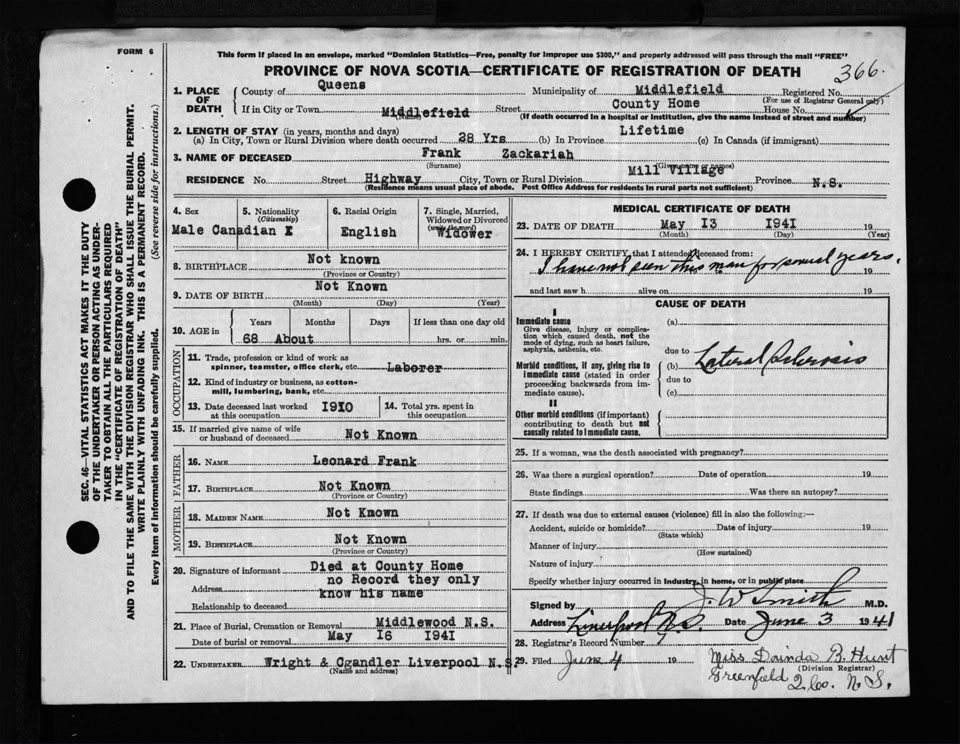 FORM 6
This form if placed in an envelope, marked "Dominion Statistics—Free, penalty for improper use $300," and properly addressed will pass through the mail "FREE"
PROVINCE OF NOVA SCOTIA—CERTIFICATE OF REGISTRATION OF DEATH
366.
1. PLACE OF DEATH
County of Queens Municipality of Middlefield Registered No.
(For use of Registrar General only)
If in City or Town Middlefield Street County Home House No.
(If death occurred in a hospital or institution, give the name instead of street and number)
2. LENGTH OF STAY (in years, months and days)
(a) In City, Town or Rural Division where death occurred 28 Yrs (b) In Province Lifetime (c) In Canada (if immigrant)
3. NAME OF DECEASED Frank Zackariah
(Surname) (Given name or names)
RESIDENCE No. Street Highway City, Town or Rural Division Mill Village Province N.S.
(Residence means usual place of abode. Post Office Address for residents in rural parts not sufficient)
4. Sex
Male
5. Nationality
(Citizenship)
Canadian X
6. Racial Origin
English
7. Single, Married, Widowed or Divorced
(write the word)
Widower
8. BIRTHPLACE Not known
(Province or Country)
9. DATE OF BIRTH Not Known
(Month) (Day) (Year)
10. AGE in
Years Months Days If less than one day old
68 About hrs. or min.
OCCUPATION
11. Trade, profession or kind of work as
spinner, teamster, office clerk, etc. Laborer
12. Kind of industry or business, as cotton-
mill, lumbering, bank, etc.
13. Date deceased last worked at this occupation 1910
14. Total yrs. spent in this occupation
15. If married give name of wife
or husband of deceased Not Known
FATHER
16. NAME Leonard Frank
17. BIRTHPLACE Not Known
(Province or Country)
MOTHER
18. MAIDEN NAME Not Known
19. BIRTHPLACE Not Known
(Province or Country)
20. Signature of informant Died at County Home
Address no Record they only
know his name
Relationship to deceased
21. Place of Burial, Cremation or Removal Middlewood N.S.
Date of burial or removal May 16 1941
22. UNDERTAKER Wright & Cgandler Liverpool N.S.
(Name and address)
MEDICAL CERTIFICATE OF DEATH
23. DATE OF DEATH May 13 1941
(Month) (Day) (Year)
24. I HEREBY CERTIFY, that I attended deceased from:
I have not seen this man for several years.
19
to 19
and last saw h alive on 19
CAUSE OF DEATH
I
Immediate cause
Give disease, injury or complica-
tion which caused death, not the
mode of dying, such as heart failure,
asphyxia, asthenia, etc.
(a)
due to
Morbid conditions, if any, giving rise to
immediate cause (stated in order
proceeding backwards from im-
mediate cause).
(b) Lateral Sclerosis
due to
(c)
II
Other morbid conditions (if important)
contributing to death but not
causally related to immediate cause.
25. If a woman, was the death associated with pregnancy?
26. Was there a surgical operation? Date of operation 19
State findings Was there an autopsy?
27. If death was due to external causes (violence) fill in also the following:—
Accident, suicide or homicide? Date of injury 19
(State which)
Manner of injury
(How sustained)
Nature of injury
Specify whether injury occurred in Industry, in home, or in public place
Signed by J. W Smith M.D.
Address Liverpool N.S. Date June 3 1941
28. Registrar's Record Number
29. Filed June 4 19 Miss Dorinda B. Hunt
(Division Registrar)
Greenfield Q. Co. N. S.
SEC. 46—VITAL STATISTICS ACT MAKES IT THE DUTY
OF THE UNDERTAKER OR PERSON ACTING AS UNDER-
TAKER TO OBTAIN ALL THE PARTICULARS REQUIRED
IN THE "CERTIFICATE OF REGISTRATION OF DEATH"
AND TO FILE THE SAME WITH THE DIVISION REGISTRAR WHO SHALL ISSUE THE BURIAL PERMIT.
WRITE PLAINLY WITH UNFADING INK. THIS IS A PERMANENT RECORD.
Every item of information should be carefully supplied. (See reverse side for instructions.)